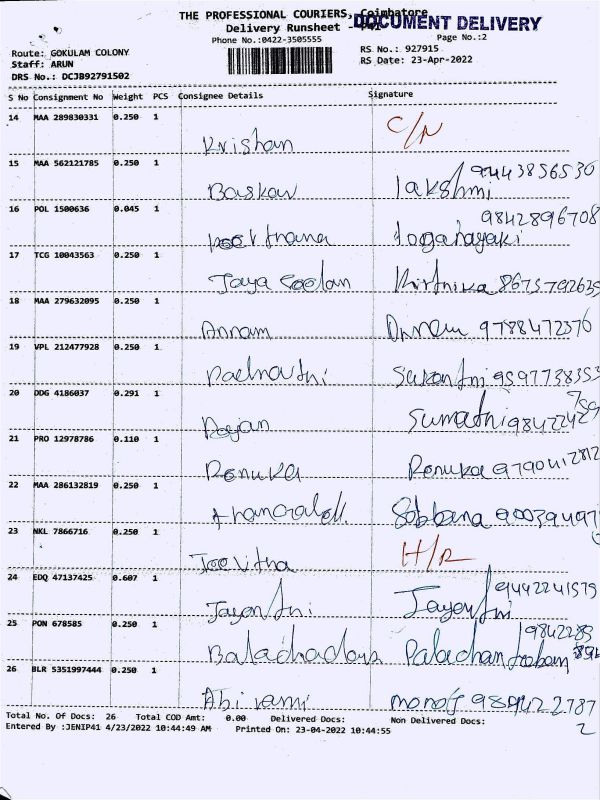 THE PROFESSIONAL COURIERS, Coimbatore
DOCUMENT DELIVERY
Delivery Runsheet - P41
Phone No.:0422-3505555
Page No.:2
Route: GOKULAM COLONY
RS No.: 927915
Staff: ARUN
RS Date: 23-Apr-2022
DRS No.: DCJB92791502
S No Consignment No Weight PCS Consignee Details Signature
14 MAA 289830331 0.250 1
Krishan
15 MAA 562121785 0.250 1 9443856536
Baskar lakshmi
16 POL 1500636 0.045 1 9842896708
Keerthana loganayaki
17 TCG 10043563 0.250 1
Jaya Seelan Kirthika 8675792635
18 MAA 279632095 0.250 1
Annam Annam 9788472376
19 VPL 212477928 0.250 1
Padmathi Sukanthi 9597738353
20 DDG 4186037 0.291 1
Rajan Sumathi
21 PRO 12978786 0.110 1
Renuka Renuka 9790412812
22 MAA 286132819 0.250 1
Sobbana
23 NKL 7866716 0.250 1
Jeevitha
24 EDQ 47137425 0.607 1 9442241579
Jayanthi Jayanthi
25 PON 678585 0.250 1 9842285
26 BLR 5351997444 0.250 1
Abirami manoj 989422787
2
Total No. Of Docs: 26 Total COD Amt: 0.00 Delivered Docs: Non Delivered Docs:
Entered By :JENIP41 4/23/2022 10:44:49 AM Printed On: 23-04-2022 10:44:55